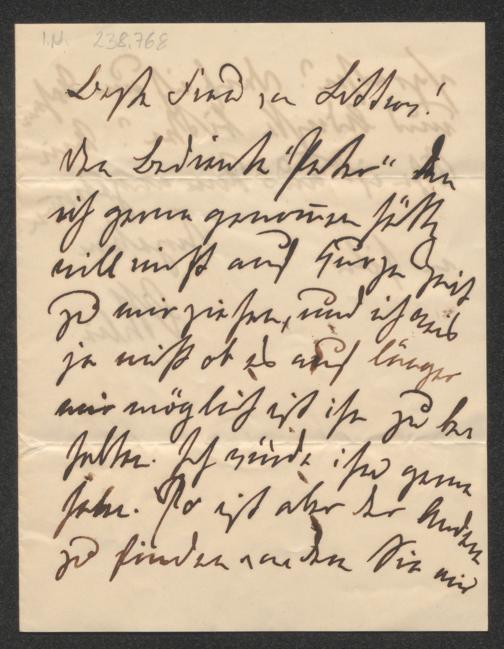 I.N. 238.768
Beste Frau von Littrow!
Der Bediente "Peter" den
ich gerne genommen hätte
will nicht auf kurze Zeit
zu mir ziehen, und ich weis
ja nicht ob es auf länger
mir möglich ist ihn zu be
halten. Ich würde ihn gerne
haben. Wo ist aber der Andere
zu finden von dem Sie mir